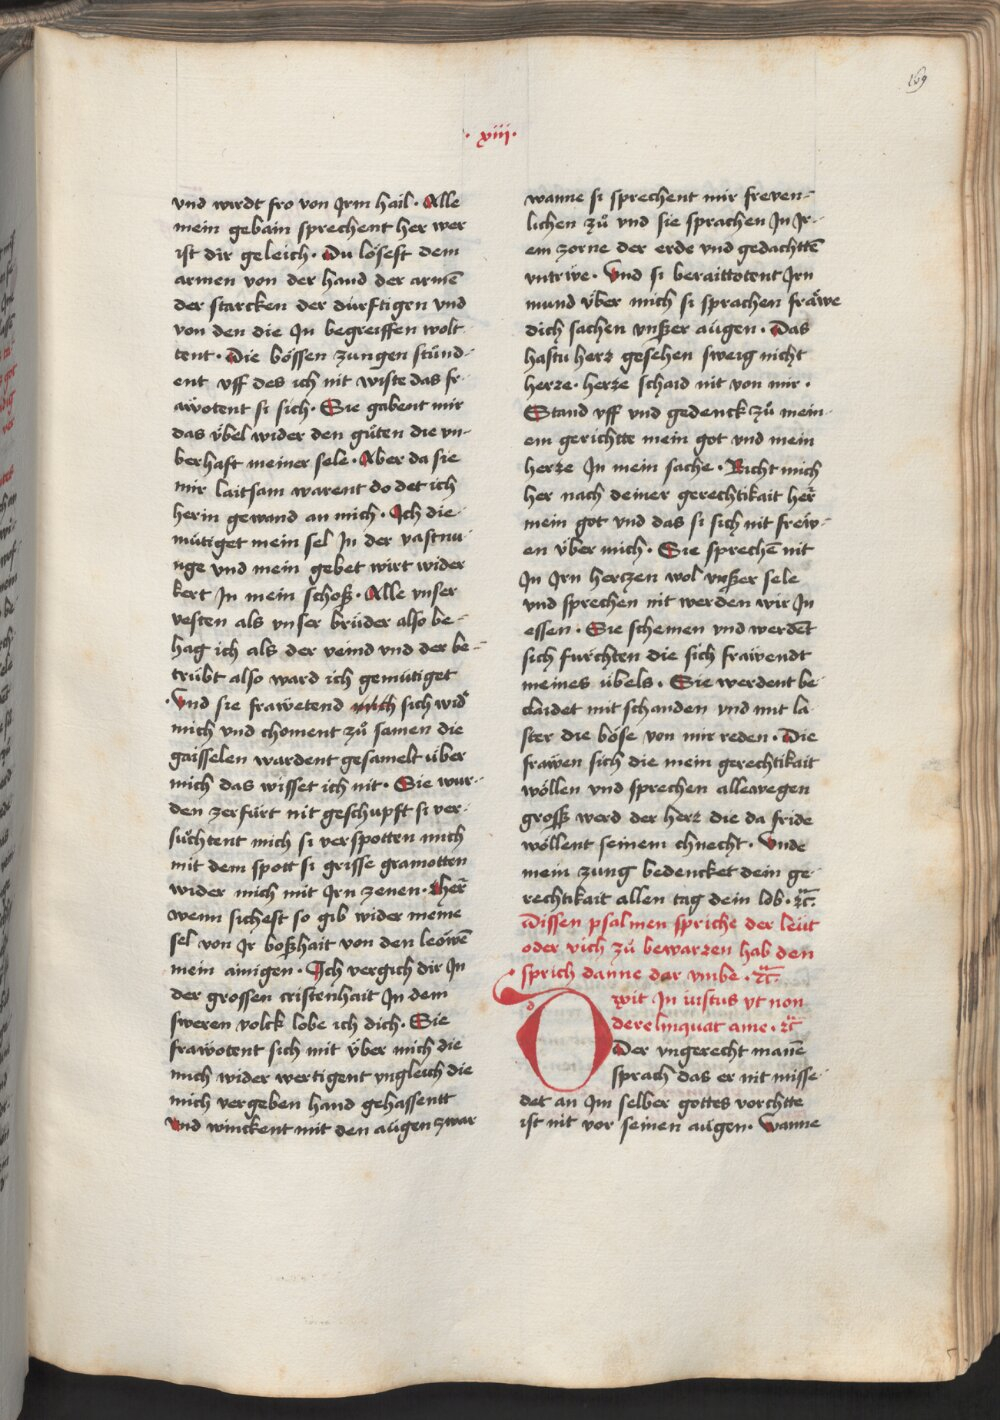 169
· xiii ·
vnd wirdt fro von Jrm hail · Alle
mein gebain sprechent her wer
ist dir geleich · Du lösest dem
armen von der hand der armē
der starcken der dürftigen vnd
von den die Jn begreiffen wolt
tent · Die bössen zungen stůnd-
ent vff des ich nit wiste das fr-
awotent si sich · Sie gabent mir
das v̈bel wider den gůten die vn-
berhaft meiner sele · Aber da sie
mir laitsam warent do det ich
herin gewand an mich · Ich die-
mütiget mein sel Jn der vastnu-
nge vnd mein gebet wirt wider
kert Jn mein schoß · Alle vnser
vesten als vnser brüder also be-
hag ich als der veind vnd der be-
trübt also ward ich gemütiget
· Vnd sie frawetend sich wid̄
mich vnd choment zů samen die
gaisselen wardent gesamelt über
mich das wisset ich nit · Sie wur-
den zerfürt nit geschupft si ver-
sůchtent mich si verspotten mich
mit dem spott si grisse gramotten
wider mich mit Jrn zenen · Her̄
wenn sichest so gib wider meine
sel von Jr boßhait von den leöwē
mein ainigen · Ich vergich dir Jn
der grossen cristenhait Jn dem
sweren volck lobe ich dich · Sie
frawotent sich mit v̈ber mich die
mich wider wertigent vngleich die
mich vergeben hand gehassentt
vnd winckent mit den augen zwar
wanne si sprechent mir freven-
lichen zů vnd sie sprachen Jn Jr-
em zorne der erde vnd gedachttē
vntriwe · Vnd si beraittotent Jrn
mund v̈ber mich si sprachen fräwe
dich sachen vnßer augen · Das
hastu herz gesehen sweig nicht
herze · herze schaid nit von mir ·
Stand vff vnd gedenck zů mein-
em gerichtte mein got vnd mein
herze Jn mein sache · Richt mich
her nach deiner gerechtikait her̄
mein got vnd das si sich nit frëw-
en v̈ber mich · Sie sprechē nit
Jn Jrn hertzen wol vnßer sele
vnd sprechen nit werden wir Jn
essen · Sie schemen vnd werdēt
sich furchten die sich frawendt
meines übels · Sie werdent be
claidet mit schanden vnd mit la
ster die böse von mir reden · Die
frawen sich die mein gerechtikait
wöllen vnd sprechen allewegen
groß werd der herz die da fride
wöllent seinem chnecht · Vnde
mein zung bedencket dein ge
rechtikait allen tag dein lob · ꝛc̄
Dissen psalmen spriche der leüt
oder vich zů bewarzen hab den
sprich danne dar vmbe · ꝛc̄
Dixit Jn iustus vt non
derelinquat ame · ꝛc̄
Der vngerecht manē
sprach das er nit misse-
det an Jm selber gottes vorchtte
ist nit vor seinen augen · Wanne